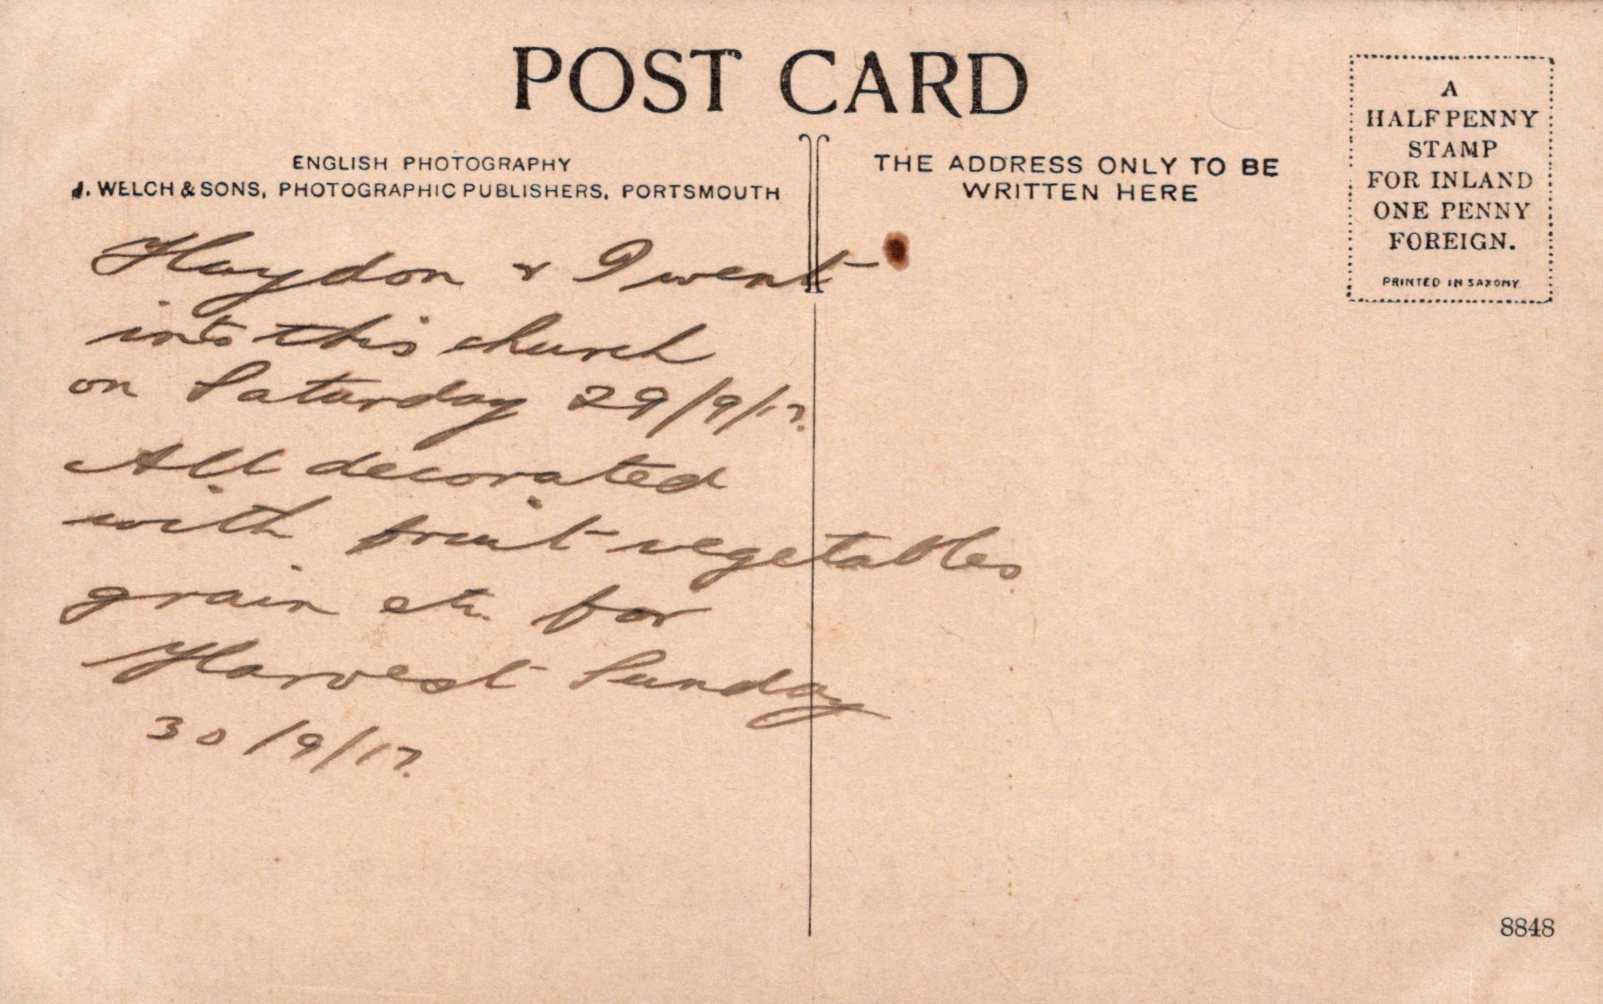 POST CARD
ENGLISH PHOTOGRAPHY
J. WELCH & SONS, PHOTOGRAPHIC PUBLISHERS, PORTSMOUTH
THE ADDRESS ONLY TO BE
WRITTEN HERE
A
HALFPENNY
STAMP
FOR INLAND
ONE PENNY
FOREIGN.
PRINTED IN SAXONY
Haydon & I went
into this church
on Saturday 29/9/17.
All decorated
with fruit vegetables
grain etc. for
Harvest Sunday
30/9/17.
8848